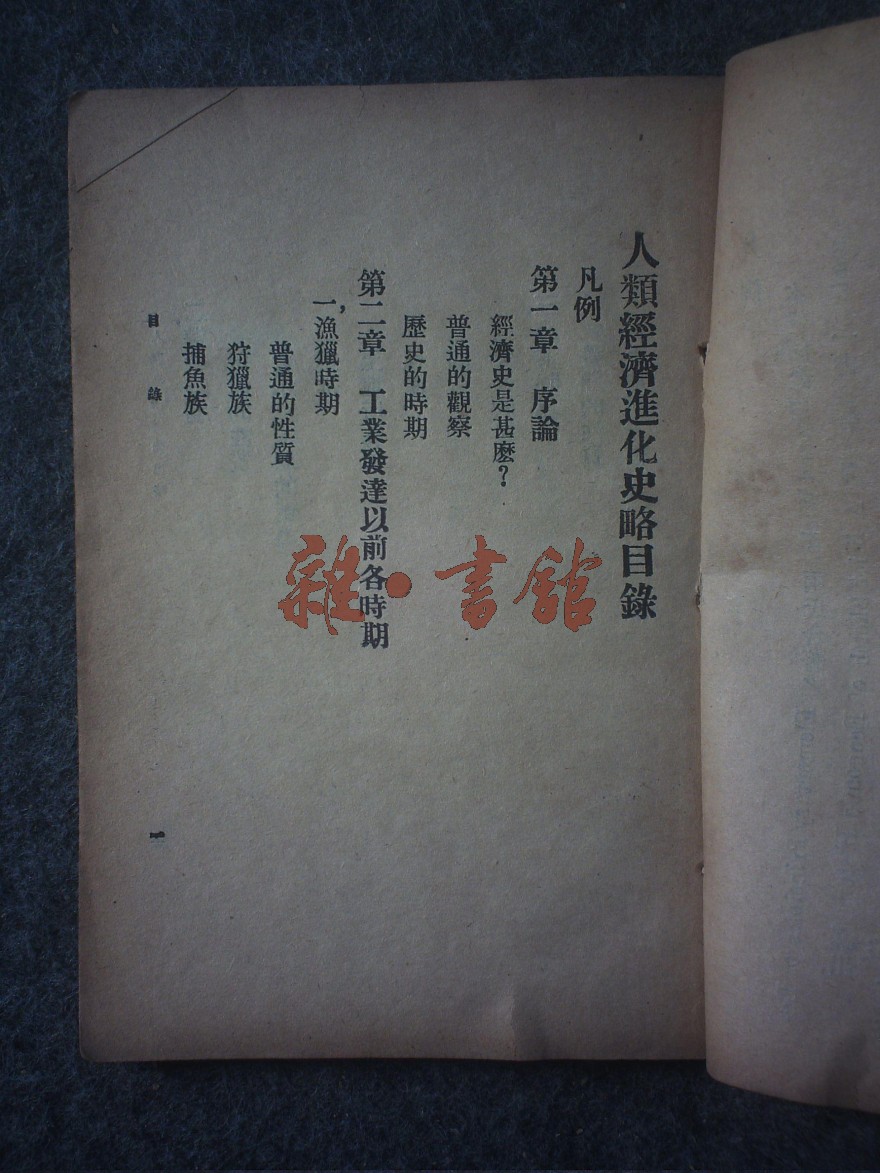 人類經濟進化史略目錄
凡例
第一章　序論
經濟史是甚麼？
普通的觀察
歷史的時期
第二章　工業發達以前各時期
一，漁獵時期
普通的性質
狩獵族
捕魚族
目　錄
一
雜·書館